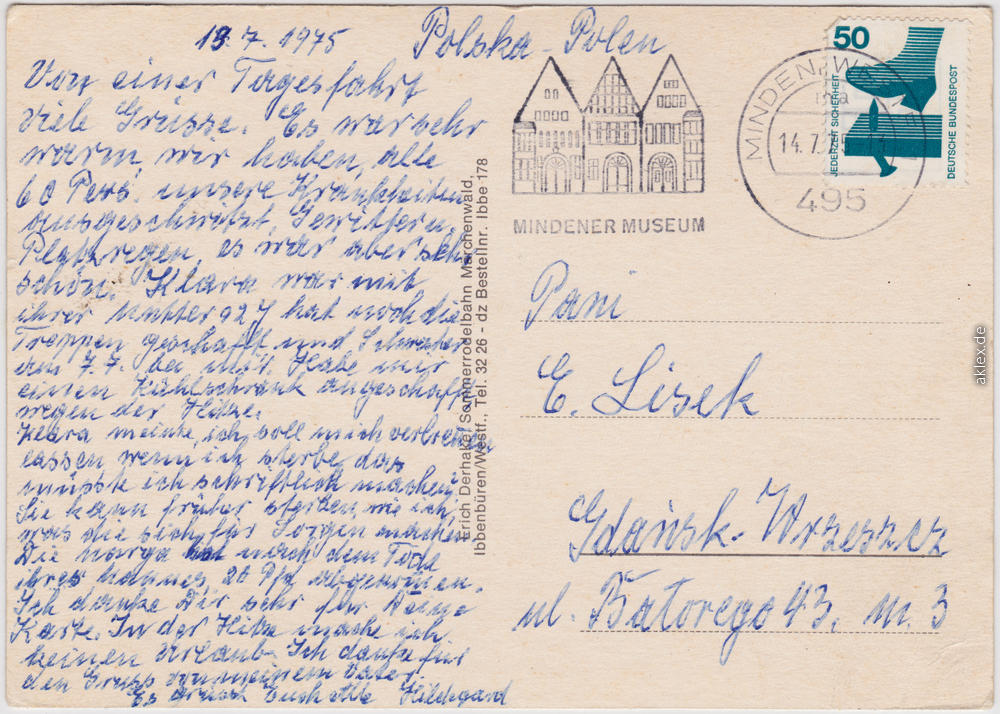 13.7.1975 Polska-Polen
Von einer Tagesfahrt
viele Grüsse. Es war sehr
warm wir haben, alle
60 Pers. unsere Krankheiten
ausgeschwitzt, Gewittern,
Platzregen, es war aber sehr
schön. Klara war mit
ihrer Mutter 92 J hat noch die
Treppen geschafft und Schwester
am 7.7. bei mir. Habe mir
einen Kühlschrank angeschafft
wegen der Hitze.
Klara meinte, ich soll mich verbrennen
lassen, wenn ich sterbe das
müsste ich schriftlich machen
Sie kann früher sterben wie ich,
was die sich für Sorgen machen
Die Marga hat nach dem Tode
ihres Mannes 20 Pfd abgenommen.
Ich danke Dir sehr für Deine
Karte. In der Hitze mache ich
keinen Urlaub. Ich danke für
den Gruss von meinem Vater.
Es grüsst Euch alle Hildegard
Erich Derhake, Sommerrodelbahn Märchenwald,
Ibbenbüren/Westf., Tel. 32 26 - dz Bestellnr. Ibbe 178
MINDENER MUSEUM
MINDEN, WESTF
14.7.75
495
50
JEDERZEIT SICHERHEIT
DEUTSCHE BUNDESPOST
Pani
E. Lisek
Gdańsk-Wrzeszcz
ul. Batorego 43, m. 3
aklex.de